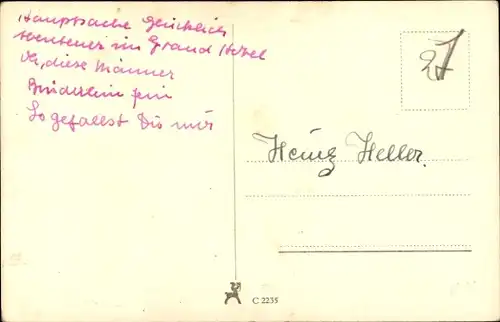 Hauptsache glücklich
Abenteuer im Grand Hotel
Oh, diese Männer
Brüderlein fein
So gefällst Du mir
27
Heinz Heller.
C 2235